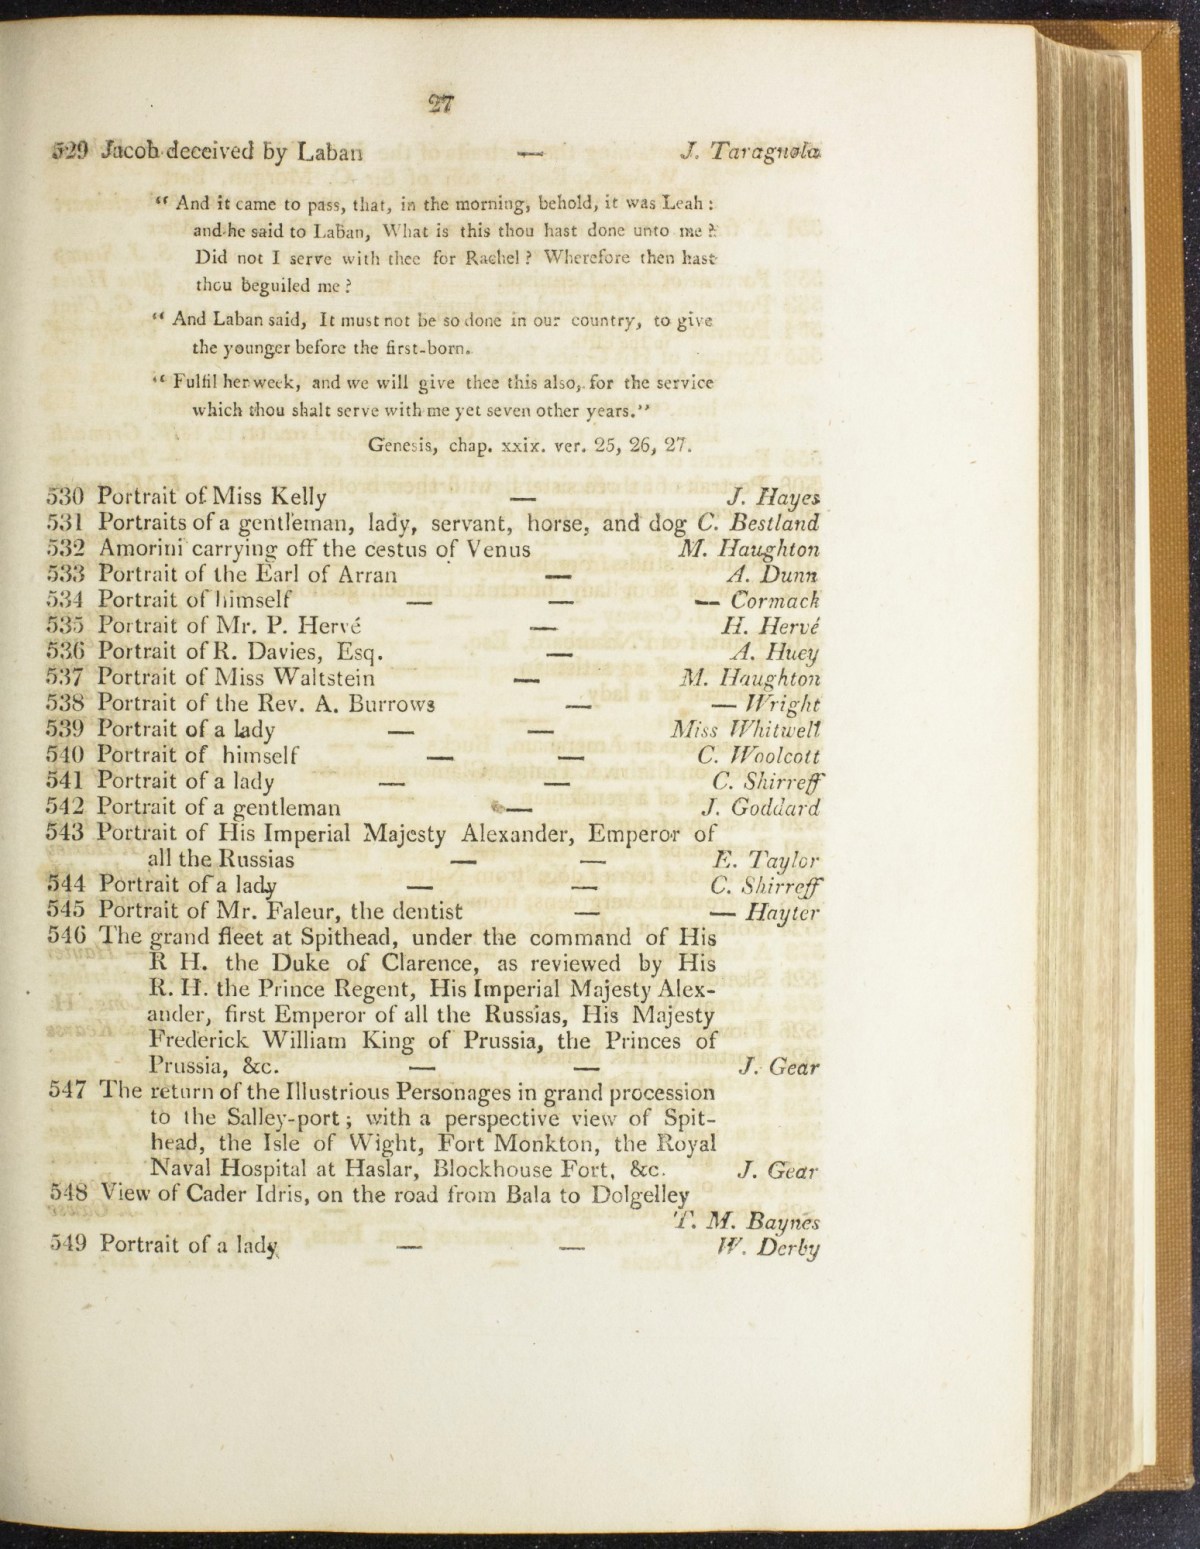 27
529 Jacob deceived by Laban — J. Taragnola
“ And it came to pass, that, in the morning, behold, it was Leah :
and he said to Laban, What is this thou hast done unto me ?
Did not I serve with thee for Rachel ? Wherefore then hast
thou beguiled me ?
“ And Laban said, It must not be so done in our country, to give
the younger before the first-born.
“ Fulfil her week, and we will give thee this also, for the service
which thou shalt serve with me yet seven other years.”
Genesis, chap. xxix. ver. 25, 26, 27.
530 Portrait of Miss Kelly — J. Hayes
531 Portraits of a gentleman, lady, servant, horse, and dog C. Bestland
532 Amorini carrying off the cestus of Venus M. Haughton
533 Portrait of the Earl of Arran — A. Dunn
534 Portrait of himself — — — Cormack
535 Portrait of Mr. P. Hervé — H. Hervé
536 Portrait of R. Davies, Esq. — A. Huey
537 Portrait of Miss Waltstein — M. Haughton
538 Portrait of the Rev. A. Burrows — — Wright
539 Portrait of a lady — — Miss Whitwell
540 Portrait of himself — — C. Woolcott
541 Portrait of a lady — — C. Shirreff
542 Portrait of a gentleman — J. Goddard
543 Portrait of His Imperial Majesty Alexander, Emperor of
all the Russias — — E. Taylor
544 Portrait of a lady — — C. Shirreff
545 Portrait of Mr. Faleur, the dentist — — Hayter
546 The grand fleet at Spithead, under the command of His
R H. the Duke of Clarence, as reviewed by His
R. H. the Prince Regent, His Imperial Majesty Alex-
ander, first Emperor of all the Russias, His Majesty
Frederick William King of Prussia, the Princes of
Prussia, &c. — — J. Gear
547 The return of the Illustrious Personages in grand procession
to the Salley-port ; with a perspective view of Spit-
head, the Isle of Wight, Fort Monkton, the Royal
Naval Hospital at Haslar, Blockhouse Fort, &c. J. Gear
548 View of Cader Idris, on the road from Bala to Dolgelley
T. M. Baynes
549 Portrait of a lady — — W. Derby